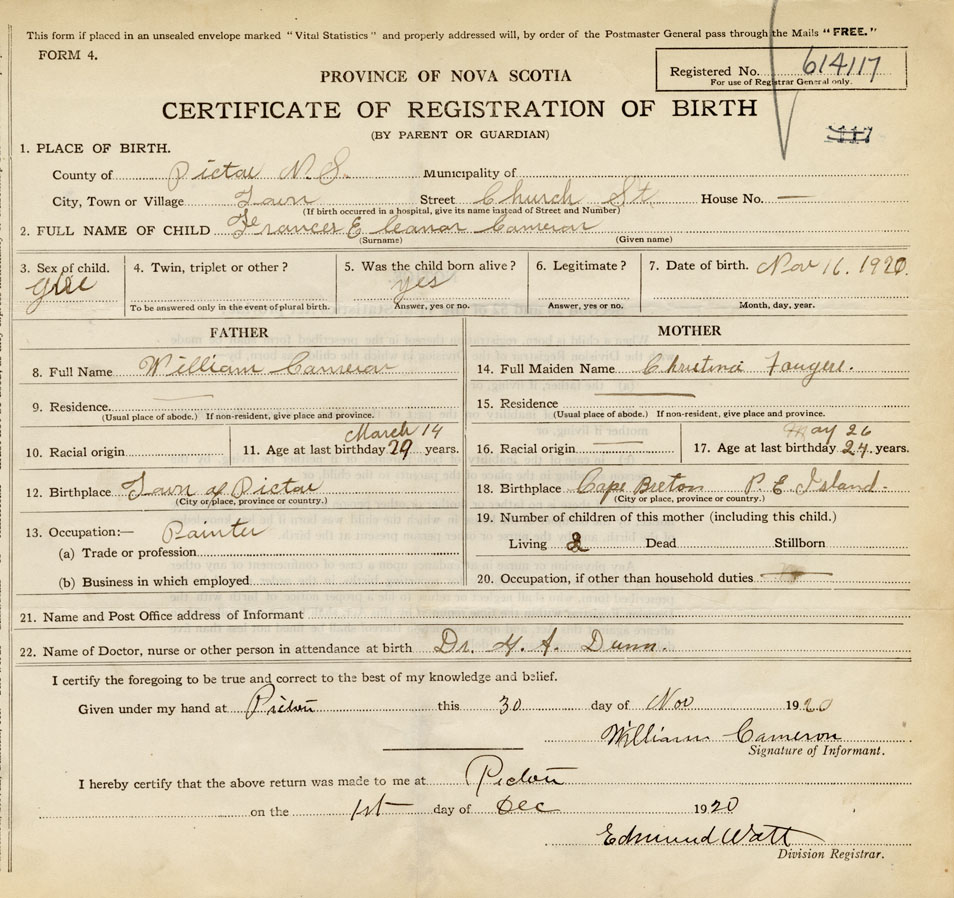 This form if placed in an unsealed envelope marked "Vital Statistics" and properly addressed will, by order of the Postmaster General pass through the Mails "FREE."
FORM 4.
Registered No. 614117
For use of Registrar General only.
PROVINCE OF NOVA SCOTIA
CERTIFICATE OF REGISTRATION OF BIRTH
(BY PARENT OR GUARDIAN)
1. PLACE OF BIRTH.
County of Pictou N.S. Municipality of
City, Town or Village Town Street Church St. House No. —
(If birth occurred in a hospital, give its name instead of Street and Number)
2. FULL NAME OF CHILD Frances Eleanor Cameron
(Surname) (Given name)
3. Sex of child. 4. Twin, triplet or other? 5. Was the child born alive? 6. Legitimate? 7. Date of birth. Nov 16. 1920.
girl yes
To be answered only in the event of plural birth. Answer, yes or no. Answer, yes or no. Month, day, year.
FATHER MOTHER
8. Full Name William Cameron
9. Residence
(Usual place of abode.) If non-resident, give place and province.
March 14
10. Racial origin 11. Age at last birthday 29 years.
12. Birthplace Town of Pictou
(City or place, province or country.)
13. Occupation:— Painter
(a) Trade or profession
(b) Business in which employed
14. Full Maiden Name Christina Fougere.
15. Residence
(Usual place of abode.) If non-resident, give place and province.
May 26
16. Racial origin 17. Age at last birthday 24 years.
18. Birthplace Cape Breton P. E. Island.
(City or place, province or country.)
19. Number of children of this mother (including this child.)
Living 2 Dead Stillborn
20. Occupation, if other than household duties
21. Name and Post Office address of Informant
22. Name of Doctor, nurse or other person in attendance at birth Dr. A. Dunn.
I certify the foregoing to be true and correct to the best of my knowledge and belief.
Given under my hand at Pictou this 30 day of Nov 1920
William Cameron
Signature of Informant.
I hereby certify that the above return was made to me at Pictou
on the 1st day of Dec 1920
Edmund Watt
Division Registrar.